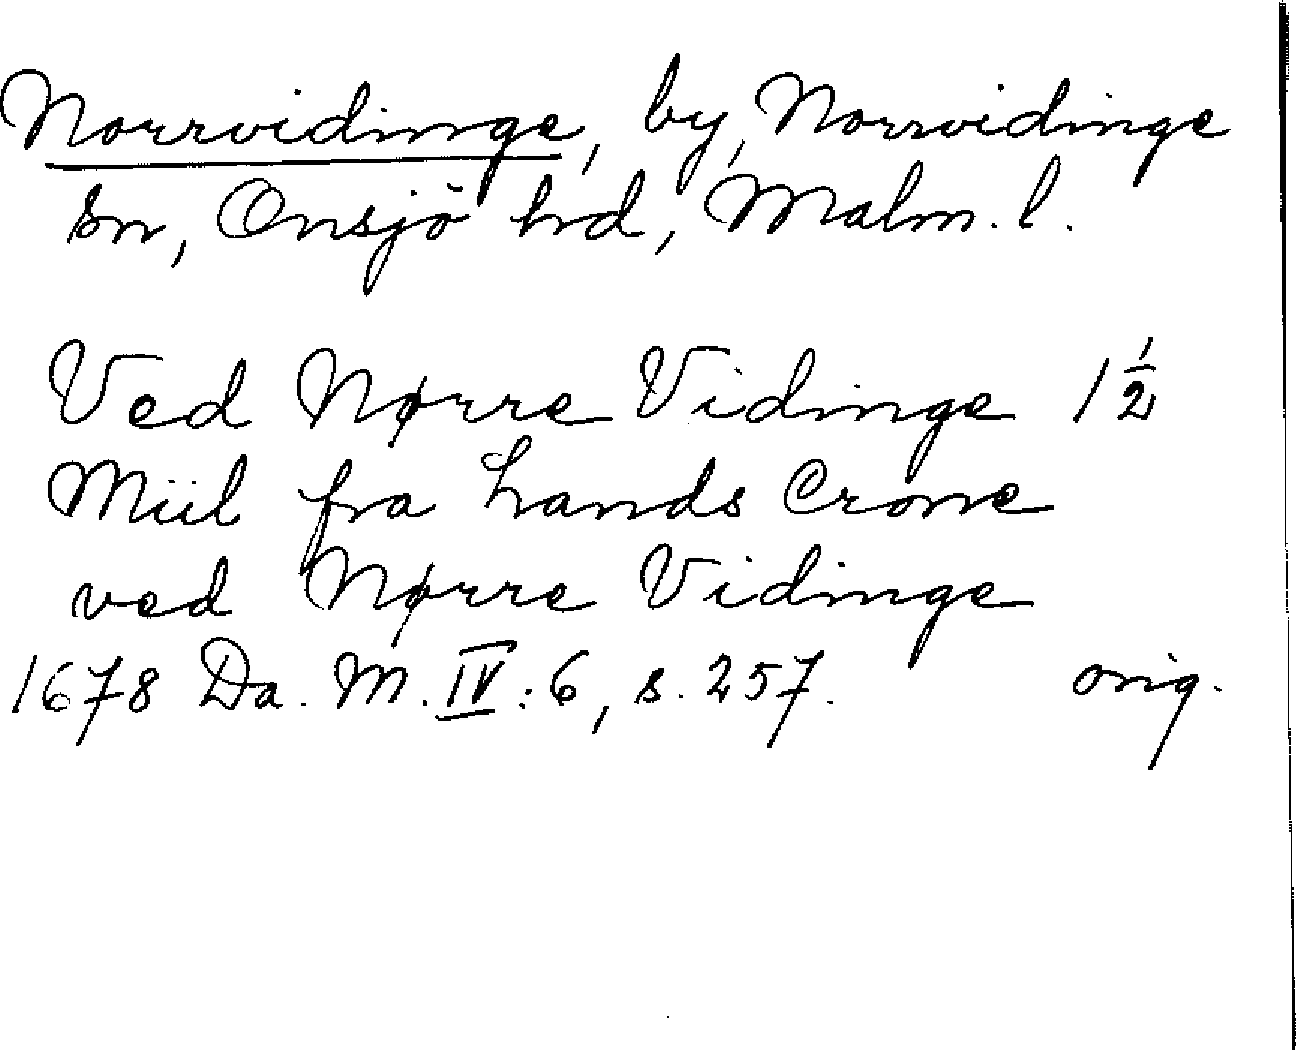 Norrvidinge, by, Norrvidinge
sn, Onsjö hd, Malm. l.
Ved Nørre Vidinge 1 1/2
Miil fra Lands Crone
ved Nørre Vidinge
1678 Da. M. IV: 6, s. 257. orig.